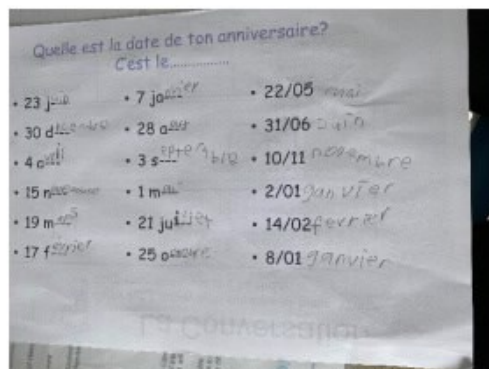 Quelle est la date de ton anniversaire?
C'est le...............
• 23 juin
• 30 décembre
• 4 avril
• 15 novembre
• 19 mars
• 17 février
• 7 janvier
• 28 août
• 3 septembre
• 1 mai
• 21 juillet
• 25 octobre
• 22/05 mai
• 31/06 juin
• 10/11 novembre
• 2/01 janvier
• 14/02 fevrier
• 8/01 janvier
La Conversation